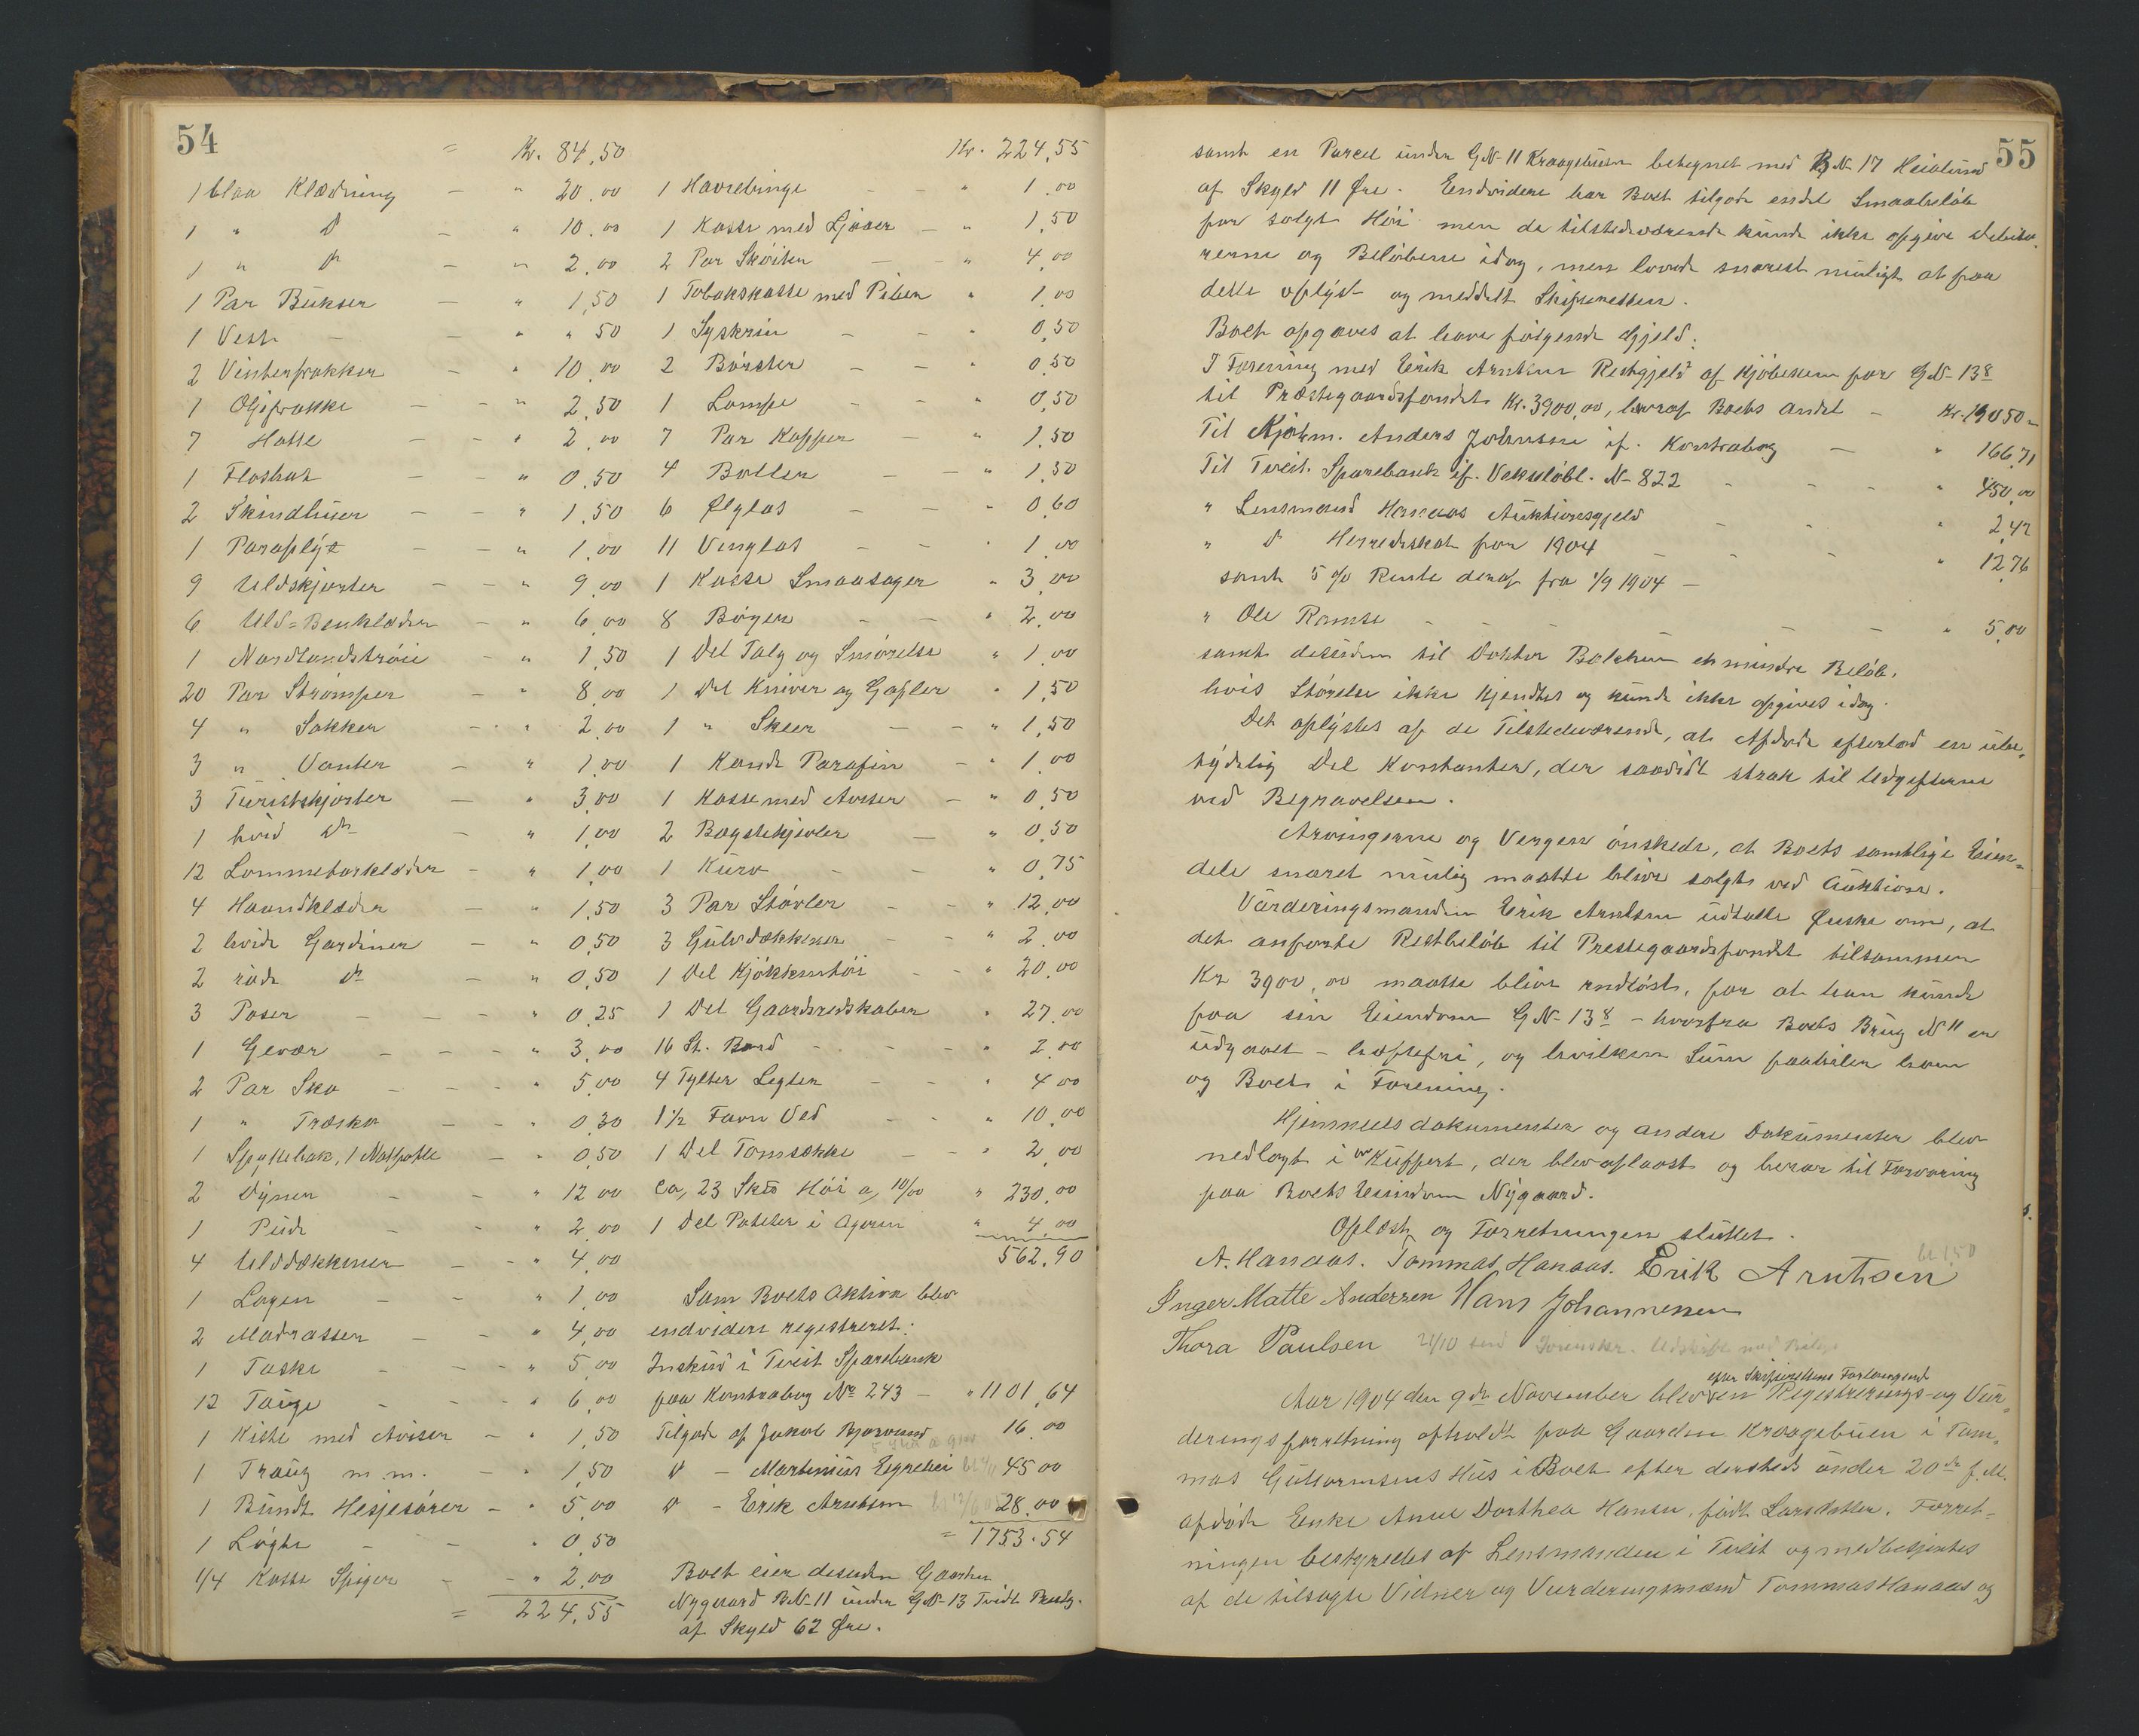 54
= Kr. 84,50
1 blaa Klædning - " 20.00
1 " D - " 10.00
1 " D - " 2,00
1 Par Bukser - " 1,50
1 Vest - - " " 50
2 Vinterfrakker - " 10,00
1 Oljefrakke - - " 2,50
7 Hatte - - " 2,00
1 Floshat - - " 0,50
2 Skindhuer - - " 1,50
1 Paraply - - " 1,00
9 Uldskjorter - - " 9,00
6 Uld=Benklæder - " 6,00
1 Nordlandstrøie - " 1,50
20 Par Strømper - " 8,00
4 " Sokker - " 2,00
3 " Vanter - " 1,00
3 Turistskjorter - " 3,00
1 hvid Do - " 1,00
12 Lommetørklæder - " 1,00
4 Haandklæder - " 1,50
2 hvide Gardiner - " 0,50
2 røde Do - " 0,50
3 Poser - - - " 0,25
1 Gevær - - - " 3,00
2 Par Sko - - - " 5,00
1 " Træsko - - " 0,30
1 Spyttebak, 1 Natpotte - " 0,50
2 Dyner - - " 12,00
1 Pude - - " 2,00
4 Ulddækkener - - " 4,00
1 Lagen - - " 1,00
2 Madrasser - - " 4,00
1 Taske - - - " 5,00
12 Tønde - - - " 6,00
1 Kiste med Aviser - " 1,50
1 Traug m.m. - - " 1,50
1 Bundt Hesjesnører - " 5,00
1 Løgte - - " 0,50
1/4 Kasse Spiger - - " 2,00
= 224,55
Kr. 224,55
1 Havrebinge - - " 1,00
1 Kasse med Ljaaer - " 1,50
2 Par Skøiter - - " 4,00
1 Tobakskasse med Piber " 1,00
1 Syskrin - - " 0,50
2 Børster - - " 0,50
1 Lampe - - " 0,50
7 Par Kopper - " 1,50
4 Boller - - " 1,30
6 Ølglas - - " 0,60
11 Vinglas - - " 1,00
1 Kasse Smaasager " 3,00
8 Bøger - - " 2,00
1 Del Talg og Smørelse " 1,00
1 Del Kniver og Gafler " 1,50
1 " Skeer - - " 1,50
1 Kande Parafin - " 1,00
1 Kasse med Aviser - " 0,50
2 Bagstekjevler - " 0,50
1 Kurv - - " 0,75
3 Par Støvler - - " 12,00
3 Gulvdækkener - - " 2,00
1 Del Kjøkkentøi - - " 20,00
1 Del Gaardsredskaber " 27,00
16 St. Bord - - - " 2,00
4 Tylter Legter - - " 4,00
1 1/2 Favn Ved - - " 10,00
1 Del Tomsække - - " 2,00
Ca, 23 Skd Høi a, 10/00 " 230,00
1 Del Poteter i Ageren " 4,00
562,90
Som Boets Aktiva blev
endvidere registreret:
Inskud i Tveit Sparebank
paa Kontrabog No 243 - " 1101,64
Tilgode af Jakob Bjørvand 16,00
D - Martinius Egelien 45,00
D - Erik Arntsen 28,00
= 1753.54
Boet eier desuden Gaarden
Nygaard BN-11 under GN-13 Tveidt Prestg.
af Skyld 62 Øre.
55
samt en Parcel under GN-11 Kraagebuen betegnet med BN-17 Heialund
af Skyld 11 Øre. Endvidere har Boet tilgode endel Smaabeløb
for solgt Høi men de tilstedeværende kunde ikke opgive Debito-
rerne og Beløbene idag, men lovede snarest muligt at faa
dette oplyst og meddelt Skifteretten.
Boet opgaves at have følgende Gjeld:
I Forening med Erik Arntsen Restgjeld af Kjøbesum for GN-138
til Præstegaardsfondet Kr. 3900,00, hvoraf Boets Andel - Kr. 1950 -
Til Kjøbm. Anders Johnsen if. Kontrabog - " 166,71
Til Tveit Sparebank if. Vekselobl. N-822 - - - " 450,00
" Lensmand Hanaas Auktionsgjeld - - " 2,42
" D Herredsskat for 1904 - - - " 12,76
samt 5 % Rente deraf fra 1/9 1904 -
" Ole Ramse - - - - - " 5,00
samt desuden til Doktor Balchen et mindre Beløb,
hvis Størrelse ikke kjendtes og kunde ikke opgives idag.
Det oplystes af de Tilstedeværende, at Afdøde efterlod en ube-
tydelig Del Kontanter, der saavidt strak til Udgifterne
ved Begravelsen.
Arvingerne og Vergen ønskede, at Boets samtlige Eien-
dele snarest mulig maatte blive solgt ved Auktion.
Værderingsmanden Erik Arntsen udtalte Ønske om, at
det anførte Restbeløb til Prestegaardsfondet tilsammen
Kr 3900,00 maatte blive indløst, for at han kunde
faa sin Eiendom GN-138 - hvorfra Boets Brug N 11 er
udgaaet - heftefri, og hvilken Sum paahviler ham
og Boet i Forening.
Hjemmelsdokumenter og andre Dokumenter blev
nedlagt i en Kuffert, der blev aflaast og beror til Forvaring
paa Boets Eiendom Nygaard.
Oplæst og Forretningen sluttet.
A. Hanaas. Tommas Hanaas. Erik Arntsen
Inger Matte Andersen Hans Johannessen
Thora Paulsen
efter Skifterettens Forlangende
Aar 1904 den 9de November blev en Registrerings- og Vur-
deringsforretning afholdt paa Gaarden Kraagebuen i Tom-
mas Guttormsens Hus i Boet efter dersteds under 20de f.M.
afdøde Enke Anne Dorthea Hansen, født Larsdatter. Forret-
ningen bestyredes af Lensmanden i Tveit og medbetjentes
af de tilsagte Vidner og Vurderingsmænd Tommas Hanaas og